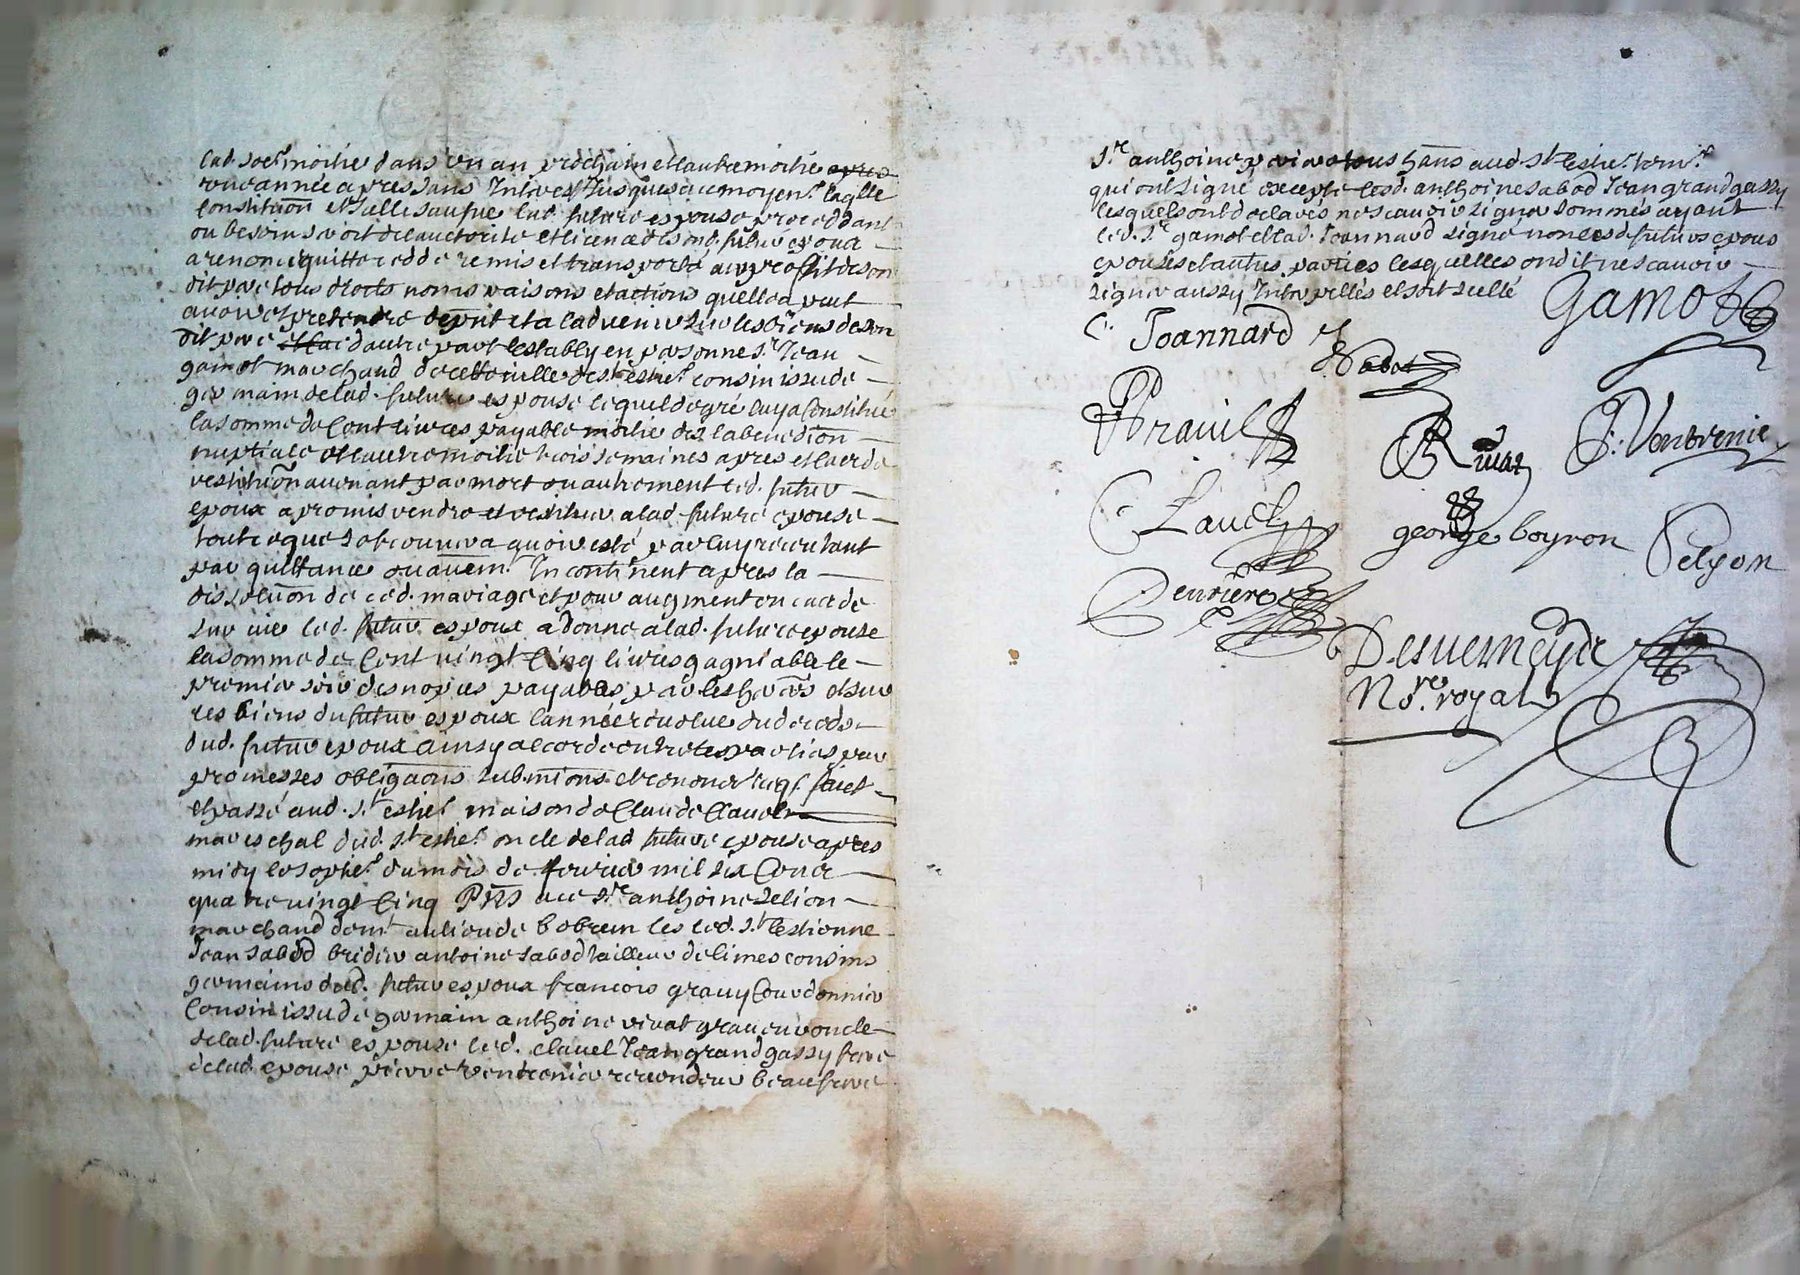 lad. soe.^t moitié dans un an prochain et lautre moitié
une année apres sans Interest Jusques a ce moyen.^t laqlle
constitution et salle saufue lad. future espouse proceddant
ou besoins soit de lauctorité et licence dud. futur epoux
a renoncé quitté ceddé remis et transporté au proffit de son
dit pere tous droits noms raisons et actions quelle a peut
auoir et pretendre de pnt et a ladvenir sur les biens de son
dit pere dautre part estably en personne s.^r Jean
gamot marchand de cette ville de s.^t estie.^e cousin issu de
germain de lad. future espouse lequel de gré luy a Constitué
la somme de Cent liures payable moitié dez la benediction
nuptiale et lautre moitié trois semaines apres et cas de
restitution auenant par mort ou autrement led. futur
epoux a promis rendre et restituer a lad. future epouse
tout ce que se trouuera auoir esté par luy receu tant
par quittance ou autrem.^t Incontinent apres la
dissolution de ced. mariage et pour augment en cas de
suruie led. futur espoux a donné a lad. future epouse
la somme de Cent vingt Cinq liures gagniable le
premier soir des nopces payables par les hers et sur
les biens du futur espoux lannée reuolue du deceds
dud. futur epoux ainsy accordé entre les parties par
promesses obligaons submions et renonc.^s req.^s faict
et passé aud. s.^t estie.^e maison de Claude Clauel
mareschal dud. s.^t estie.^e oncle de lad. future epouse apres
midy le septie.^e du mois de feurier mil six Cent
quatre vingt Cinq Pnts auec s.^re anthoine
marchand dem.^t au lieu de les led. s.^t Estienne
Jean sabod bridier antoine sabod tailleur de limes cousins
germains dud. futur espoux francois grauy Courdonnier
Cousin issu de germain anthoine rivat graueur oncle
de lad. future espouse led. clauel Jean grandgassy frere
de lad. epouse pierre Ventrenier reuendeur beaufrere
s.^re anthoine tous htans aud. s.^t estie.^e tem.^s
qui ont signé excepté lesd. anthoine sabod Jean grandgassy
lesquels ont declarés ne scauoir signer sommés ayant
led. s.^r gamot et lad. Joannard signé non lesd. futurs epoux
epouse et autres parties lesquelles ont dit ne scauoir
signer aussy Interpellés et soit scellé
Gamot
C. Joannard
Sabot
Brauil
Rivat
P. Ventrenie
C. Clauel
george boyron
Pelyon
Denriere
Desuerneyde
No.^re royal